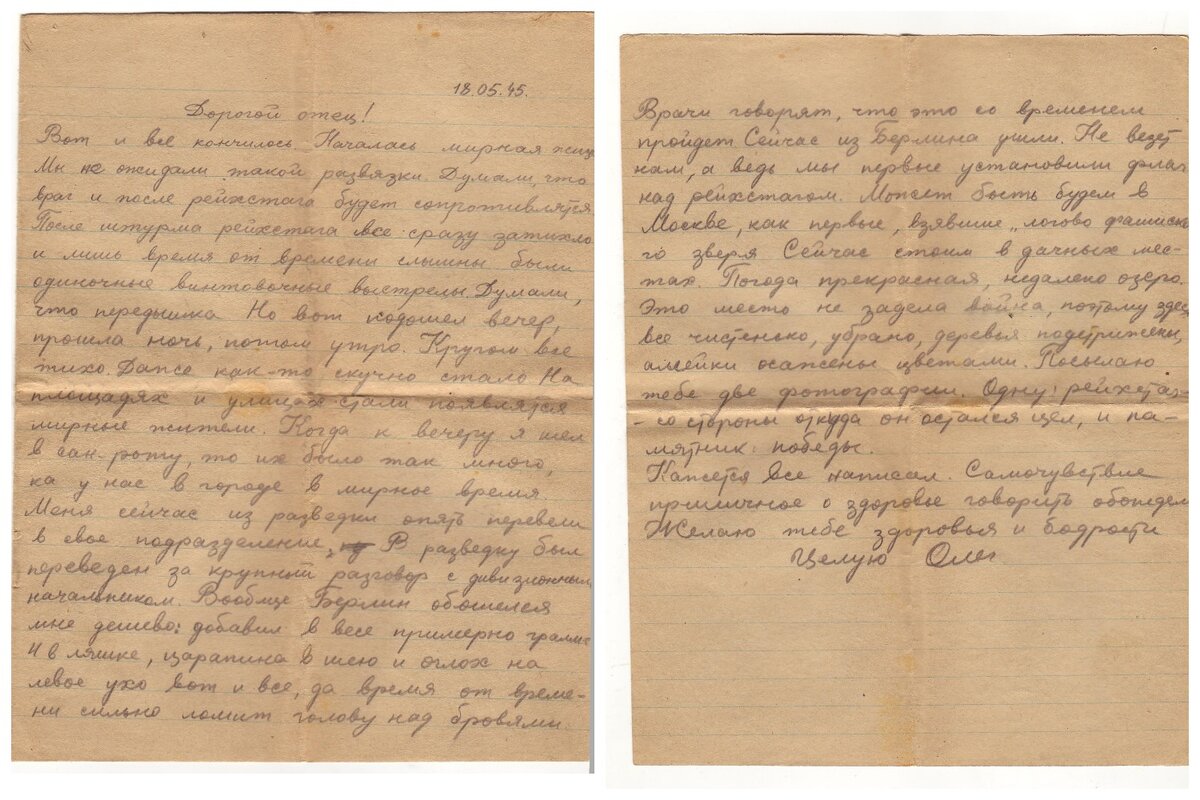 18.05.45.
Дорогой отец!
Вот и все кончилось Началась мирная жизн
Мы не ожидали такой развязки. Думали, что
враг и после рейхстага будет сопротивлятся
После штурма рейхстага все сразу затихло
и лишь время от времени слышны были
одиночные винтовочные выстрелы. Думали,
что передышка Но вот подошел вечер,
прошла ночь, потом утро. Кругом все
тихо. Даже как-то скучно стало На
площадях и улицах стали появлятся
мирные жители. Когда к вечеру я шел
в сан-роту, то их было так много,
ка у нас в городе в мирное время.
Меня сейчас из разведки опять перевели
в свое подразделение, В разведку был
переведен за крупный разговор с дивизионным
начальником. Вообще Берлин обошелся
мне дешево: добавил в весе примерно грамм
4 в ляшке, царапина в шею и оглох на
левое ухо вот и все, да время от време-
ни сильно ломит голову над бровями.
Врачи говорят, что это со временем
пройдет Сейчас из Берлина ушли. Не везет
нам, а ведь мы первые установили флаг
над рейхстагом. Может быть будем в
Москве, как первые, взявшие „логово фашистко
го зверя Сейчас стоим в дачных мес-
тах. Погода прекрасная, недалеко озеро.
Это место не задела война, поэтому здесь
все чистенько, убрано, деревья подстрижены,
аллейки осажены цветами. Посылаю
тебе две фотографии. Одну: рейхстаг-
-со стороны откуда он остался цел, и па-
мятник победы.
Кажется все написал. Самочувствие
приличное о здоровье говорить обождем
Желаю тебе здоровья и бодрости
Целую Олег